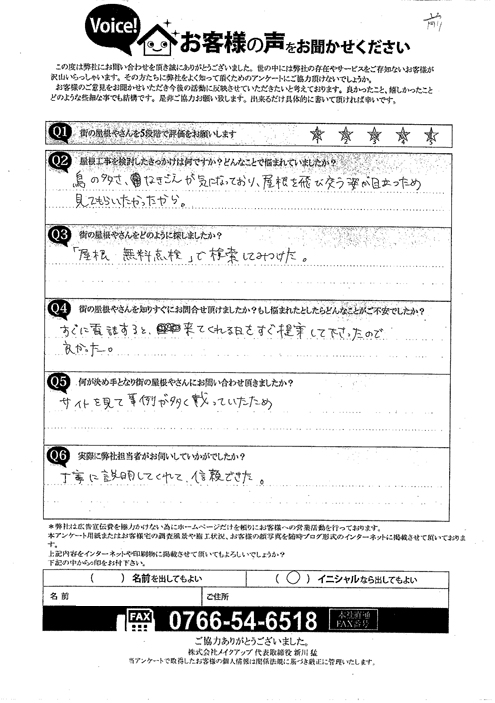 前
Voice!
お客様の声をお聞かせください
この度は弊社にお問い合わせを頂き誠にありがとうございました。世の中には弊社の存在やサービスをご存知ないお客様が
沢山いらっしゃいます。その方たちに弊社をよく知って頂くためのアンケートにご協力頂けないでしょうか。
お客様のご意見をお聞かせいただき今後の活動に反映させていただきたいと考えております。良かったこと、嬉しかったこと
どのような些細な事でも結構です。是非ご協力お願い致します。出来るだけ具体的に書いて頂ければ幸いです。
Q1 街の屋根やさんを5段階で評価をお願いします ★ ★ ★ ★ ★
Q2 屋根工事を検討したきっかけは何ですか?どんなことで悩まれていましたか?
鳥の多さ、なきごえが気になっており、屋根を飛び交う姿が目立ったため
見てもらいたかったから。
Q3 街の屋根やさんをどのように探しましたか?
「屋根 無料点検」で検索してみつけた。
Q4 街の屋根やさんを知りすぐにお問合せ頂けましたか?もし悩まれたとしたらどんなことがご不安でしたか?
すぐに電話すると、来てくれる日をすぐ提案して下さったので
良かった。
Q5 何が決め手となり街の屋根やさんにお問い合わせ頂きましたか?
サイトを見て事例が多く載っていたため
Q6 実際に弊社担当者がお伺いしていかがでしたか?
丁寧に説明してくれて、信頼できた。
*弊社は広告宣伝費を極力かけない為にホームページだけを頼りにお客様への営業活動を行っております。
本アンケート用紙またはお客様宅の調査風景や施工状況、お客様の顔写真を随時ブログ形式のインターネットに掲載させて頂いておりま
す。
上記内容をインターネットや印刷物に掲載させて頂いてもよろしいでしょうか?
下記の中から○印をお付下さい。
( ) 名前を出してもよい ( ○ ) イニシャルなら出してもよい
名前 ご住所
FAX 0766-54-6518 本社直通 FAX番号
ご協力ありがとうございました。
株式会社メイクアップ 代表取締役 新川 猛
当アンケートで取得したお客様の個人情報は関係法規に基づき厳正に管理いたします。